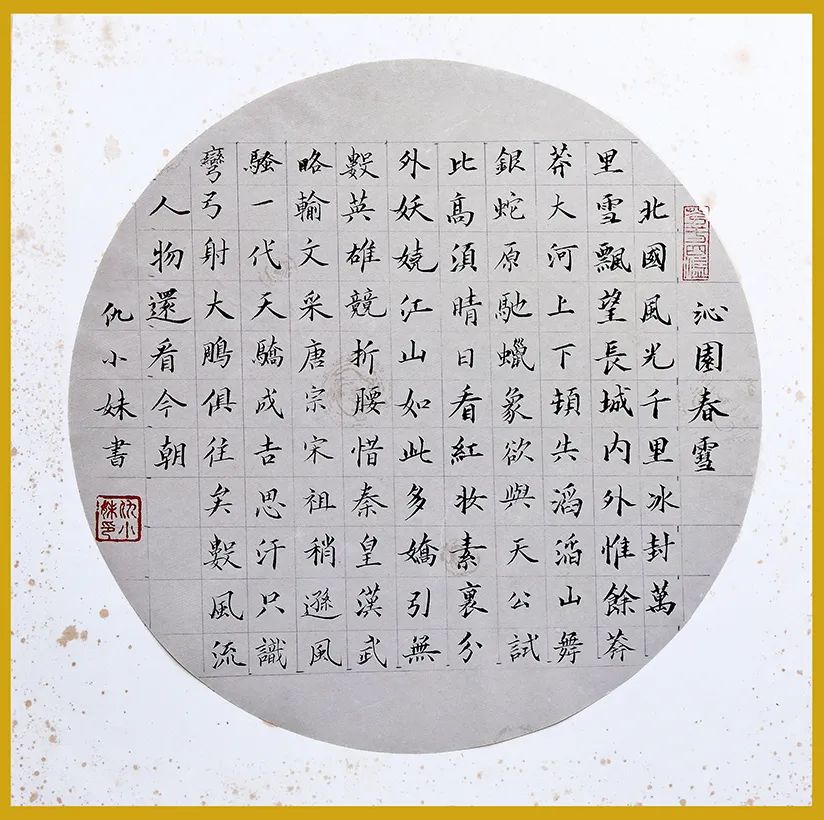 沁園春雪
北國風光千里冰封萬
里雪飄望長城内外惟餘莽
莽大河上下頓失滔滔山舞
銀蛇原馳蠟象欲與天公試
比高須晴日看紅妆素裹分
外妖嬈江山如此多嬌引無
數英雄競折腰惜秦皇漢武
略輸文采唐宗宋祖稍遜風
騷一代天驕成吉思汗只識
彎弓射大鵰俱往矣數風流
人物還看今朝
仇小妹書
仇小妹印